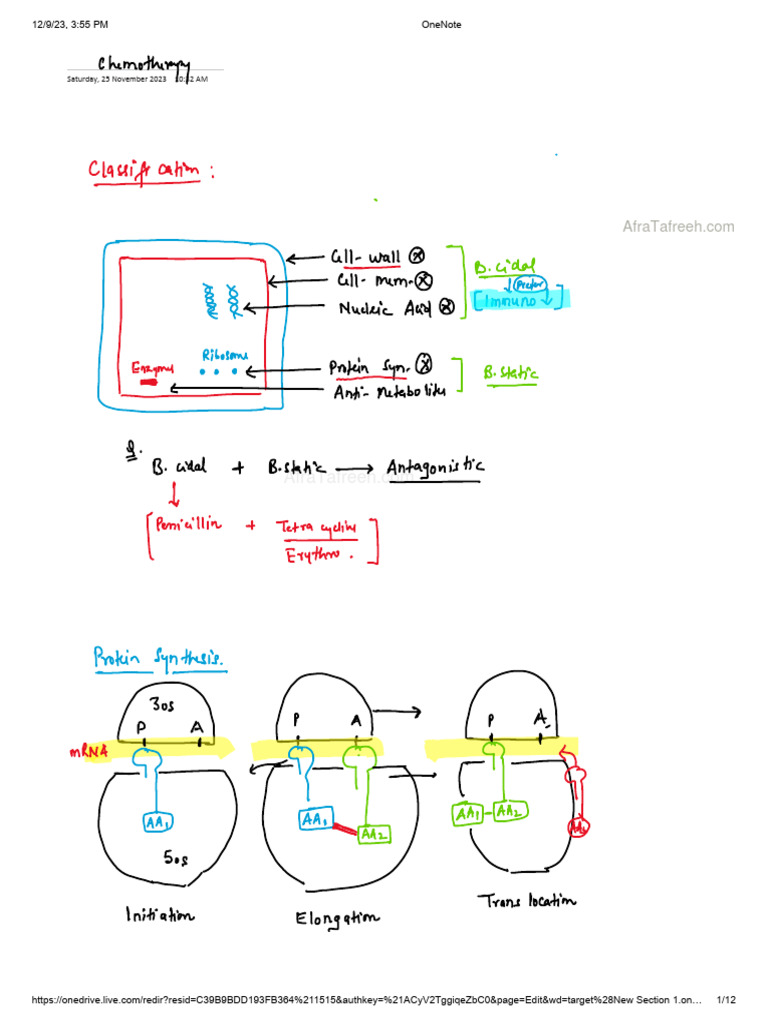 12/9/23, 3:55 PM OneNote
Chemotherapy
Saturday, 25 November 2023 10:42 AM
Classification :
AfraTafreeh.com
Cell-wall ⓧ
B.cidal
Cell-mem. ⓧ
↓ Prefer
Nucleic Acid ⓧ
[Immuno ↓]
Ribosome
Enzyme
Protein Syn. ⓧ
B.static
Anti-metabolites
Q.
B. cidal + B.static → Antagonistic
AfraTafreeh.com
↓
[Penicillin + Tetracycline
Erythro. ]
Protein Synthesis.
30s
P A P A P A
mRNA
AA1 AA1 AA2 AA1-AA2
50s
Initiation Elongation Translocation
https://onedrive.live.com/redir?resid=C39B9BDD193FB364%211515&authkey=%21ACyV2TggiqeZbC0&page=Edit&wd=target%28New Section 1.on… 1/12